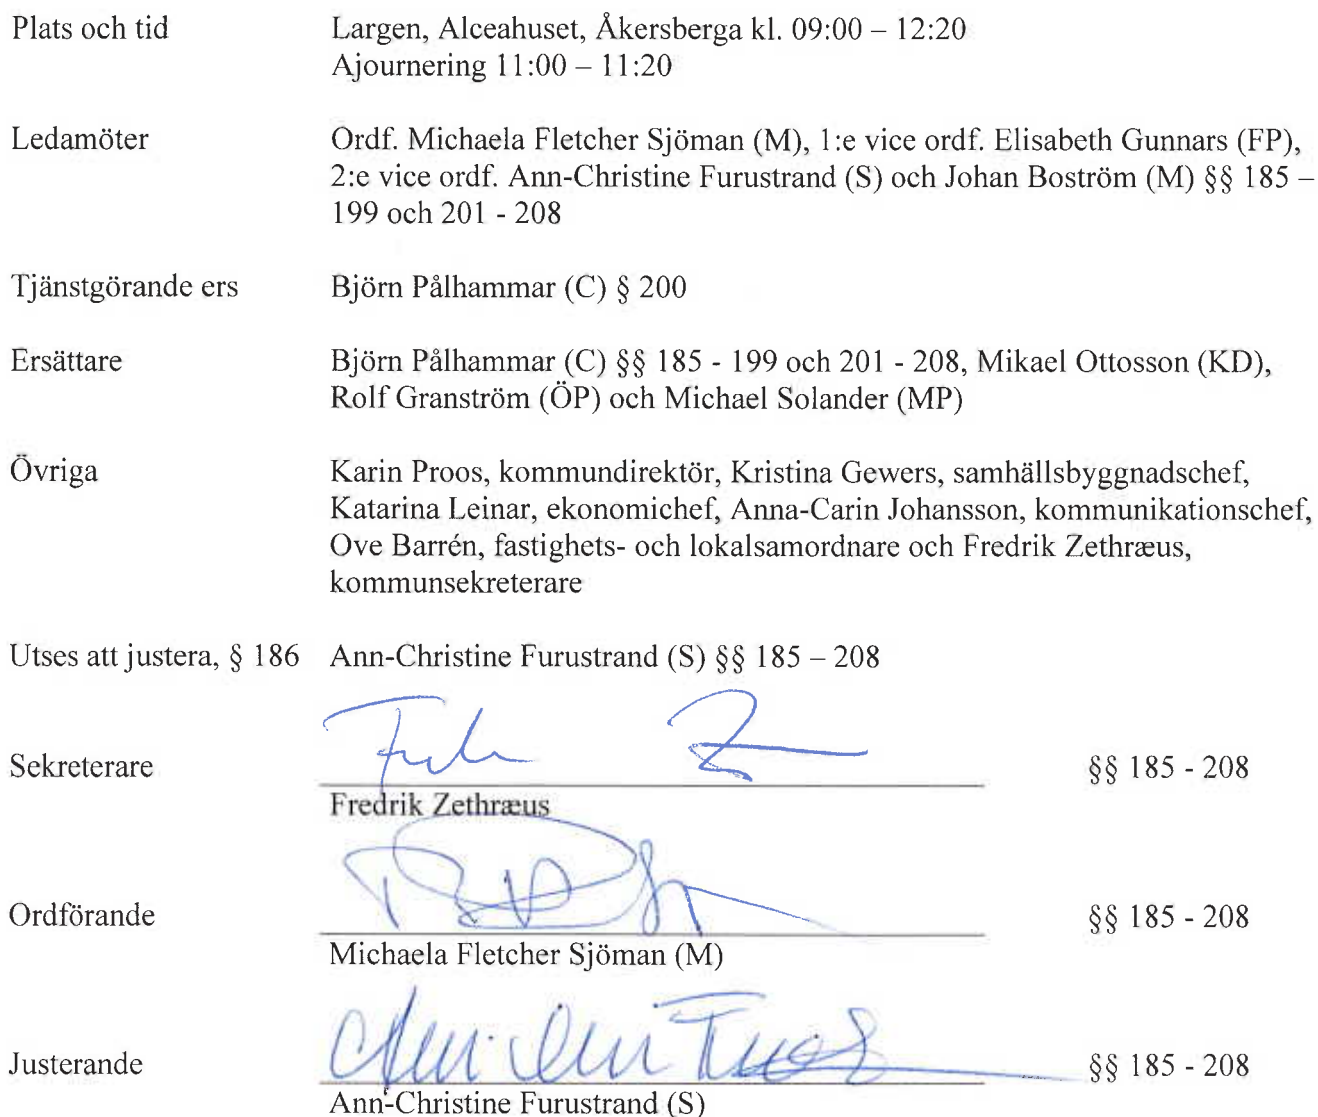 Plats och tid Largen, Alceahuset, Åkersberga kl. 09:00 – 12:20
Ajournering 11:00 – 11:20
Ledamöter Ordf. Michaela Fletcher Sjöman (M), 1:e vice ordf. Elisabeth Gunnars (FP),
2:e vice ordf. Ann-Christine Furustrand (S) och Johan Boström (M) §§ 185 –
199 och 201 - 208
Tjänstgörande ers Björn Pålhammar (C) § 200
Ersättare Björn Pålhammar (C) §§ 185 - 199 och 201 - 208, Mikael Ottosson (KD),
Rolf Granström (ÖP) och Michael Solander (MP)
Övriga Karin Proos, kommundirektör, Kristina Gewers, samhällsbyggnadschef,
Katarina Leinar, ekonomichef, Anna-Carin Johansson, kommunikationschef,
Ove Barrén, fastighets- och lokalsamordnare och Fredrik Zethræus,
kommunsekreterare
Utses att justera, § 186 Ann-Christine Furustrand (S) §§ 185 – 208
Sekreterare §§ 185 - 208
Fredrik Zethræus
Ordförande §§ 185 - 208
Michaela Fletcher Sjöman (M)
Justerande §§ 185 - 208
Ann-Christine Furustrand (S)